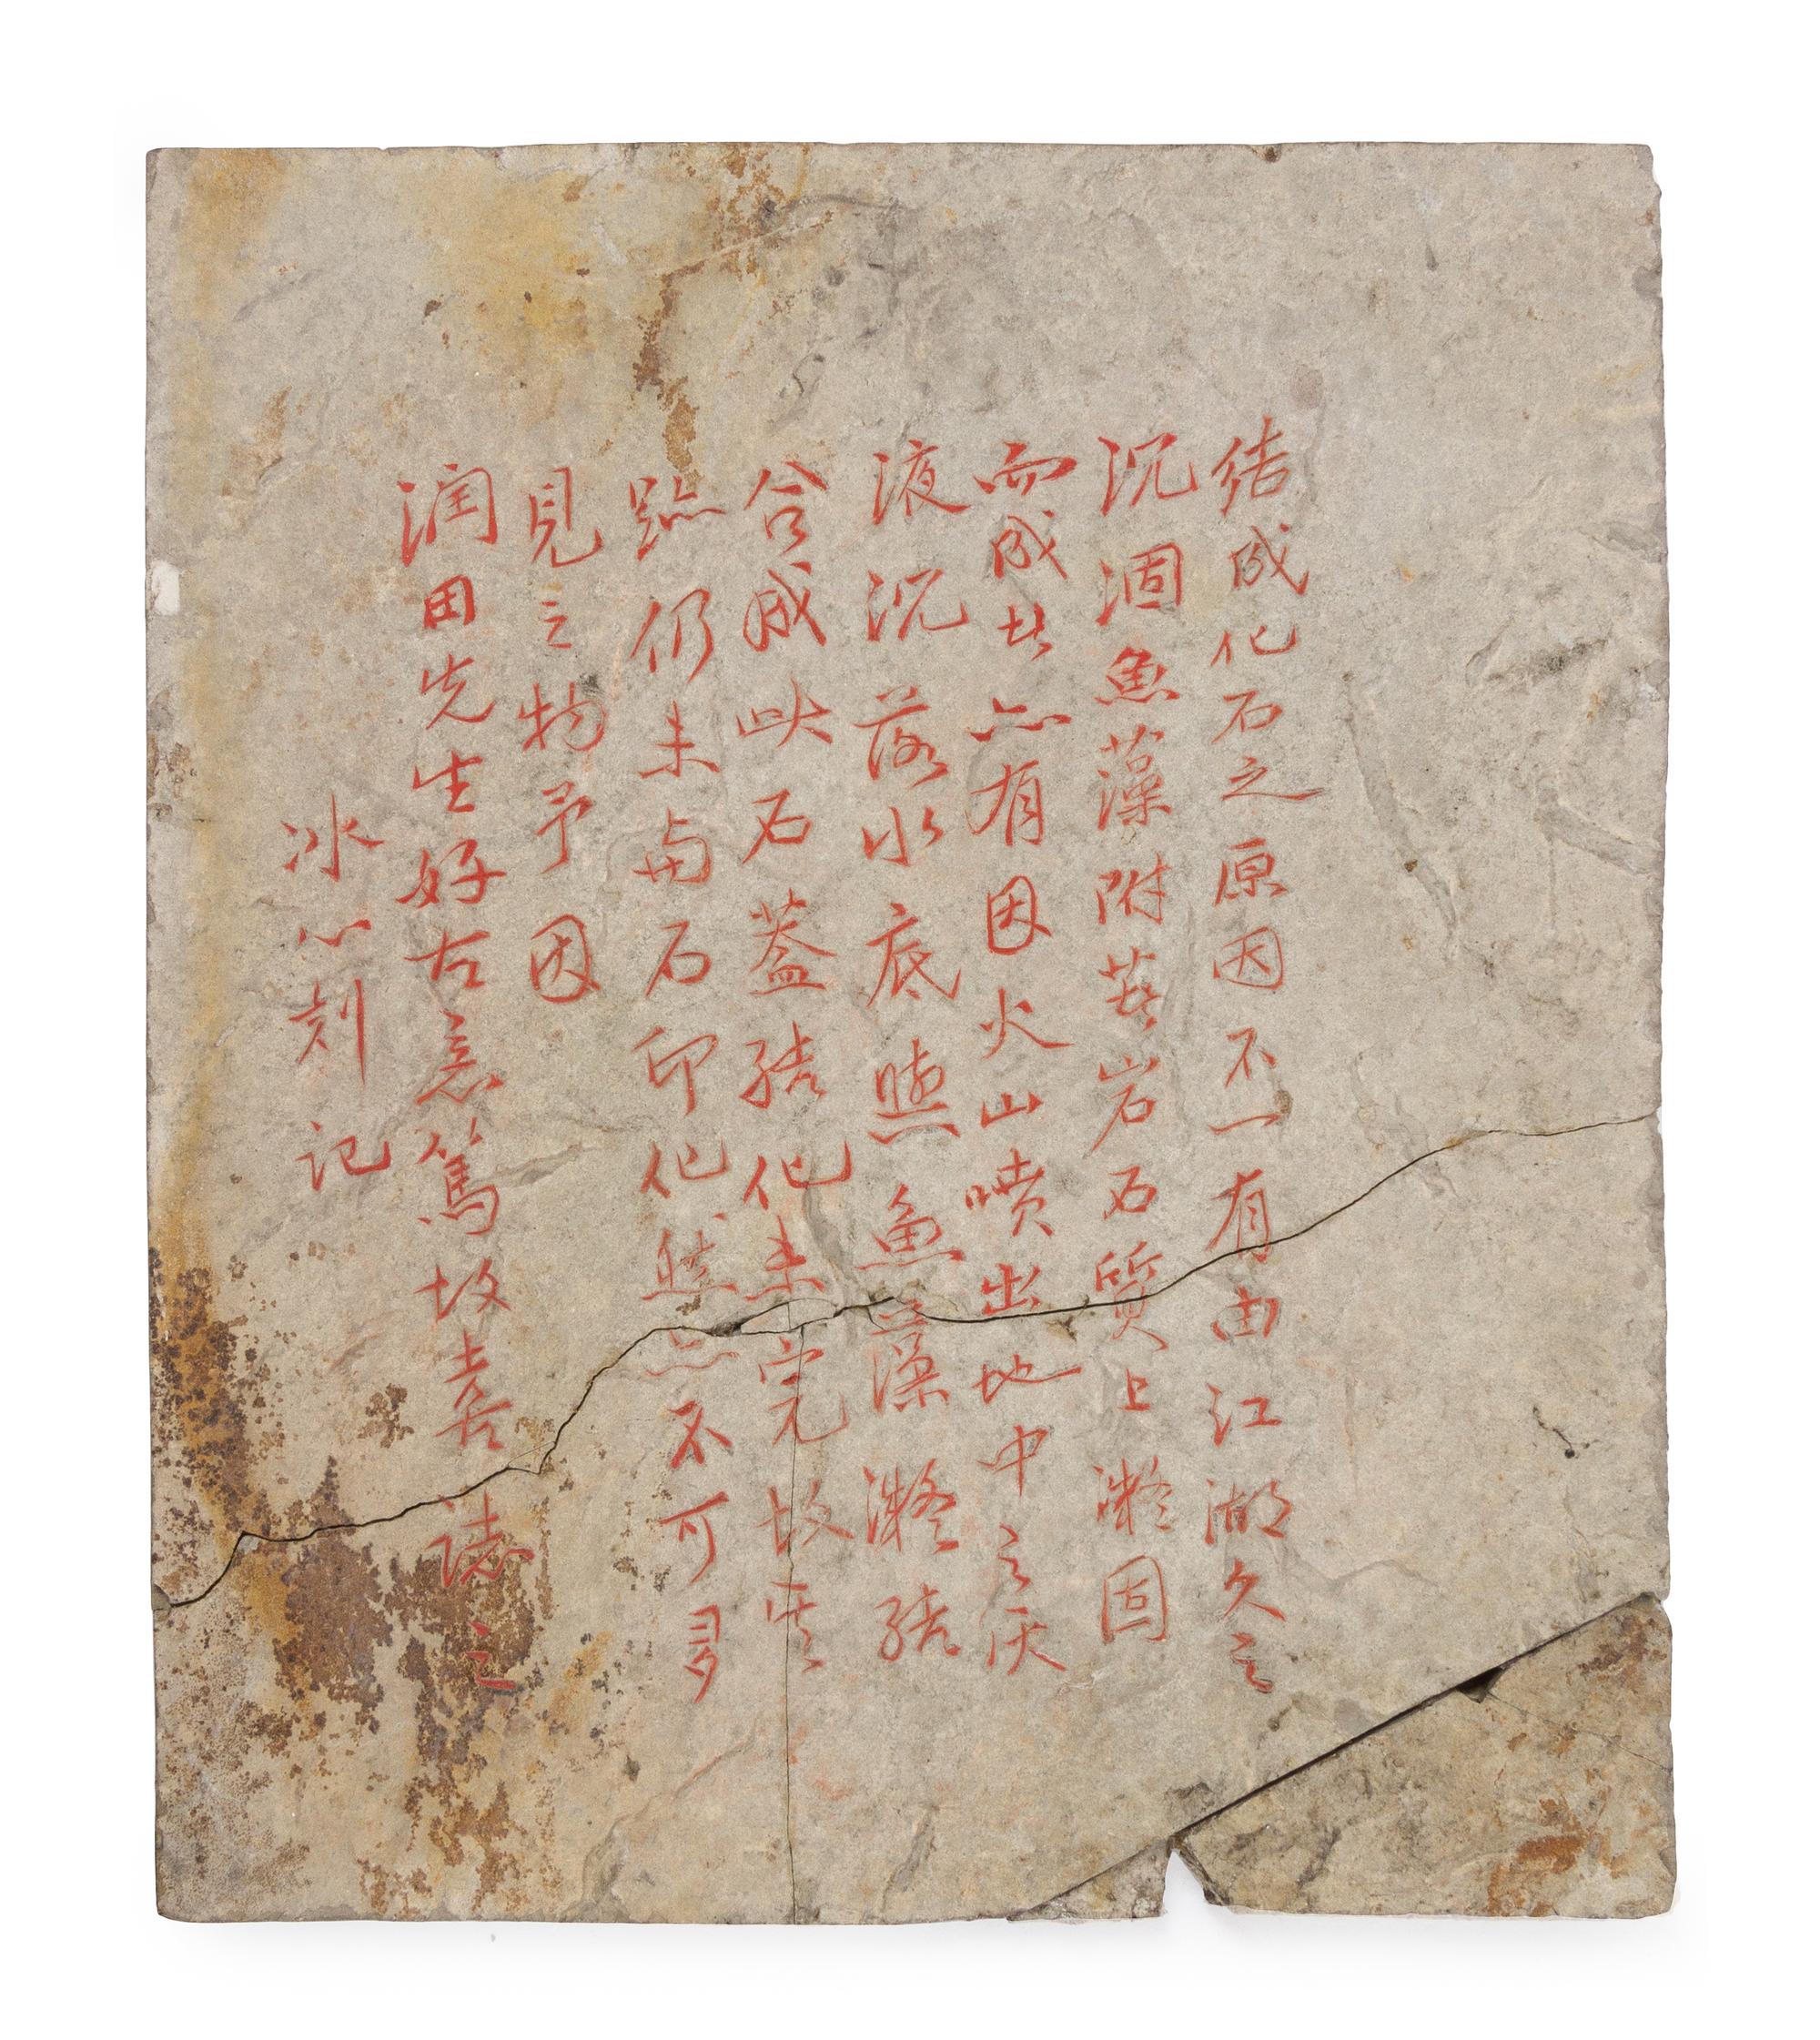 结成化石之原因不一有由江湖久之
沉涸魚藻附其岩石石質上凝固
而成者亦有因火山喷出地中之灰
液沉落水底與魚藻凝结
合成此石蓋结化未完故其
跡仍未与石印化然亦不可多
見之物予因
润田先生好古意篤故喜誌之
冰心刻记